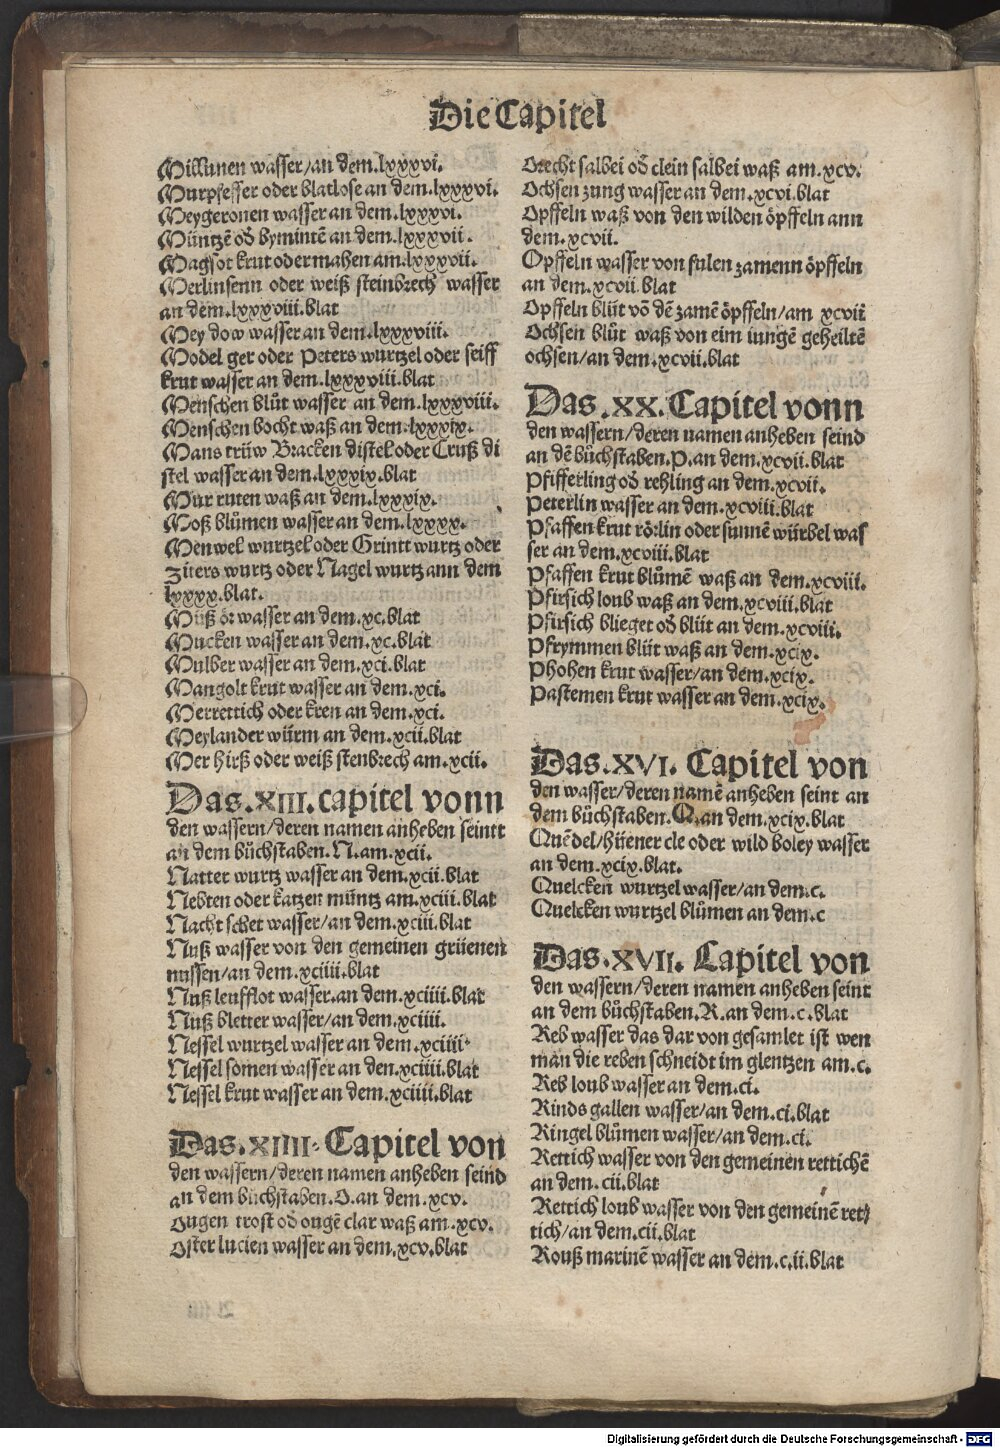 Die Capitel
Millunen wasser/an dem.lxxxvi.
Murpfeffer oder blatlose an dem.lxxxvi.
Meygeronen wasser an dem.lxxxvi.
Müntzē od̄ bymintē an dem.lxxxvii.
Magsot krut oder mahen am.lxxxvii.
Merlinsenn oder weiß steinbrech wasser
an dem.lxxxviii.blat
Mey dow wasser an dem.lxxxviii.
Model ger oder Peters wurtzel oder seiff
krut wasser an dem.lxxxviii.blat
Menschen blůt wasser an dem.lxxxviii.
Menschen bocht waß an dem.lxxxix.
Mans trüw Bracken distel oder Cruß di
stel wasser an dem.lxxxix.blat
Mur ruten waß an dem.lxxxix.
Moß blůmen wasser an dem.lxxxx.
Menwel wurtzel oder Grintt wurtz oder
ziters wurtz oder Nagel wurtz ann dem
lxxxx.blat.
Müß ör wasser an dem.xc.blat
Mucken wasser an dem.xc.blat
Mulber wasser an dem.xci.blat
Mangolt krut wasser an dem.xci.
Merrettich oder kren an dem.xci.
Meylander würm an dem.xcii.blat
Mer hirß oder weiß stenbrech am.xcii.
Das.XIII.capitel vonn
den wassern/deren namen anheben seintt
an dem bůchstaben.N.am.xcii.
Natter wurtz wasser an dem.xcii.blat
Nebten oder katzen müntz am.xciii.blat
Nacht schet wasser/an dem.xciii.blat
Nuß wasser von den gemeinen grüenen
nussen/an dem.xciiii.blat
Nuß leufflot wasser.an dem.xciiii.blat
Nuß bletter wasser/an dem.xciiii.
Nessel wurtzel wasser an dem.xciiii.
Nessel somen wasser an den.xciiii.blat
Nessel krut wasser an dem.xciiii.blat
Das.XIIII.Capitel von
den wassern/deren namen anheben seind
an dem bůchstaben.O.an dem.xcv.
ougen trost od ougē clar waß am.xcv.
oster lucien wasser an dem.xcv.blat
Orecht salbei od̄ clein salbei waß am.xcv.
Ochsen zung wasser an dem.xcvi.blat
Opffeln waß von den wilden öpffeln ann
dem.xcvii.
Opffeln wasser von fulen zamenn öpffeln
an dem.xcvii.blat
Opffeln blüt vō dē zamē öpffeln/am xcvii
Ochsen blůt waß von eim iungē geheiltē
ochsen/an dem.xcvii.blat
Das.XX.Capitel vonn
den wassern/deren namen anheben seind
an dē bůchstaben.P.an dem.xcvii.blat
Pfifferling od̄ rehling an dem.xcvii.
Peterlin wasser an dem.xcviii.blat
Pfaffen krut rörlin oder sunnē würbel was
ser an dem.xcviii.blat
Pfaffen krut blůmē waß an dem.xcviii.
Pfirsich loub waß an dem.xcviii.blat
Pfirsich blieget od̄ blüt an dem.xcviii.
Pfrymmen blüt waß an dem.xcix.
Phohen krut wasser/an dem.xcix.
Pastemen krut wasser an dem.xcix.
Das.XVI. Capitel von
den wasser/deren namē anheben seint an
dem bůchstaben.Q.an dem.xcix.blat
Quēdel/hüener cle oder wild boley wasser
an dem.xcix.blat.
Quelcken wurtzel wasser/an dem.c.
Quelcken wurtzel blůmen an dem.c
Das.XVII. Capitel von
den wassern/deren namen anheben seint
an dem bůchstaben.R.an dem.c.blat
Reb wasser das dar von gesamlet ist wen
man die reben schneidt im glentzen am.c.
Reb loub wasser an dem.ci.
Rinds gallen wasser/an dem.ci.blat
Ringel blůmen wasser/an dem.ci.
Rettich wasser von den gemeinen rettichē
an dem.cii.blat
Rettich loub wasser von den gemeinē ret/
tich/an dem.cii.blat
Rouß marinē wasser an dem.c.ii.blat
Digitalisierung gefördert durch die Deutsche Forschungsgemeinschaft - DFG